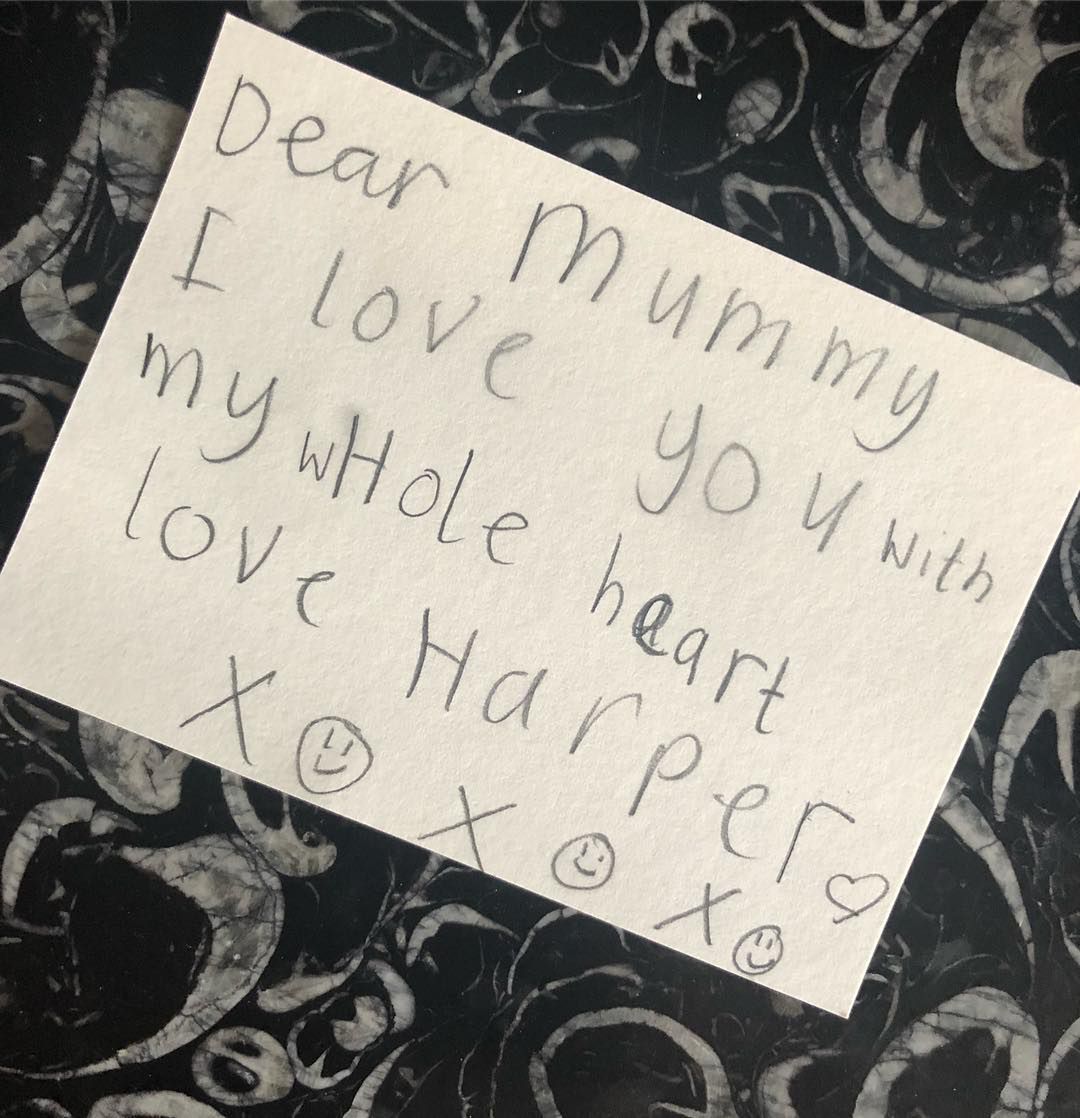 Dear Mummy
I love you with
my wHole heart
love Harper
X X X